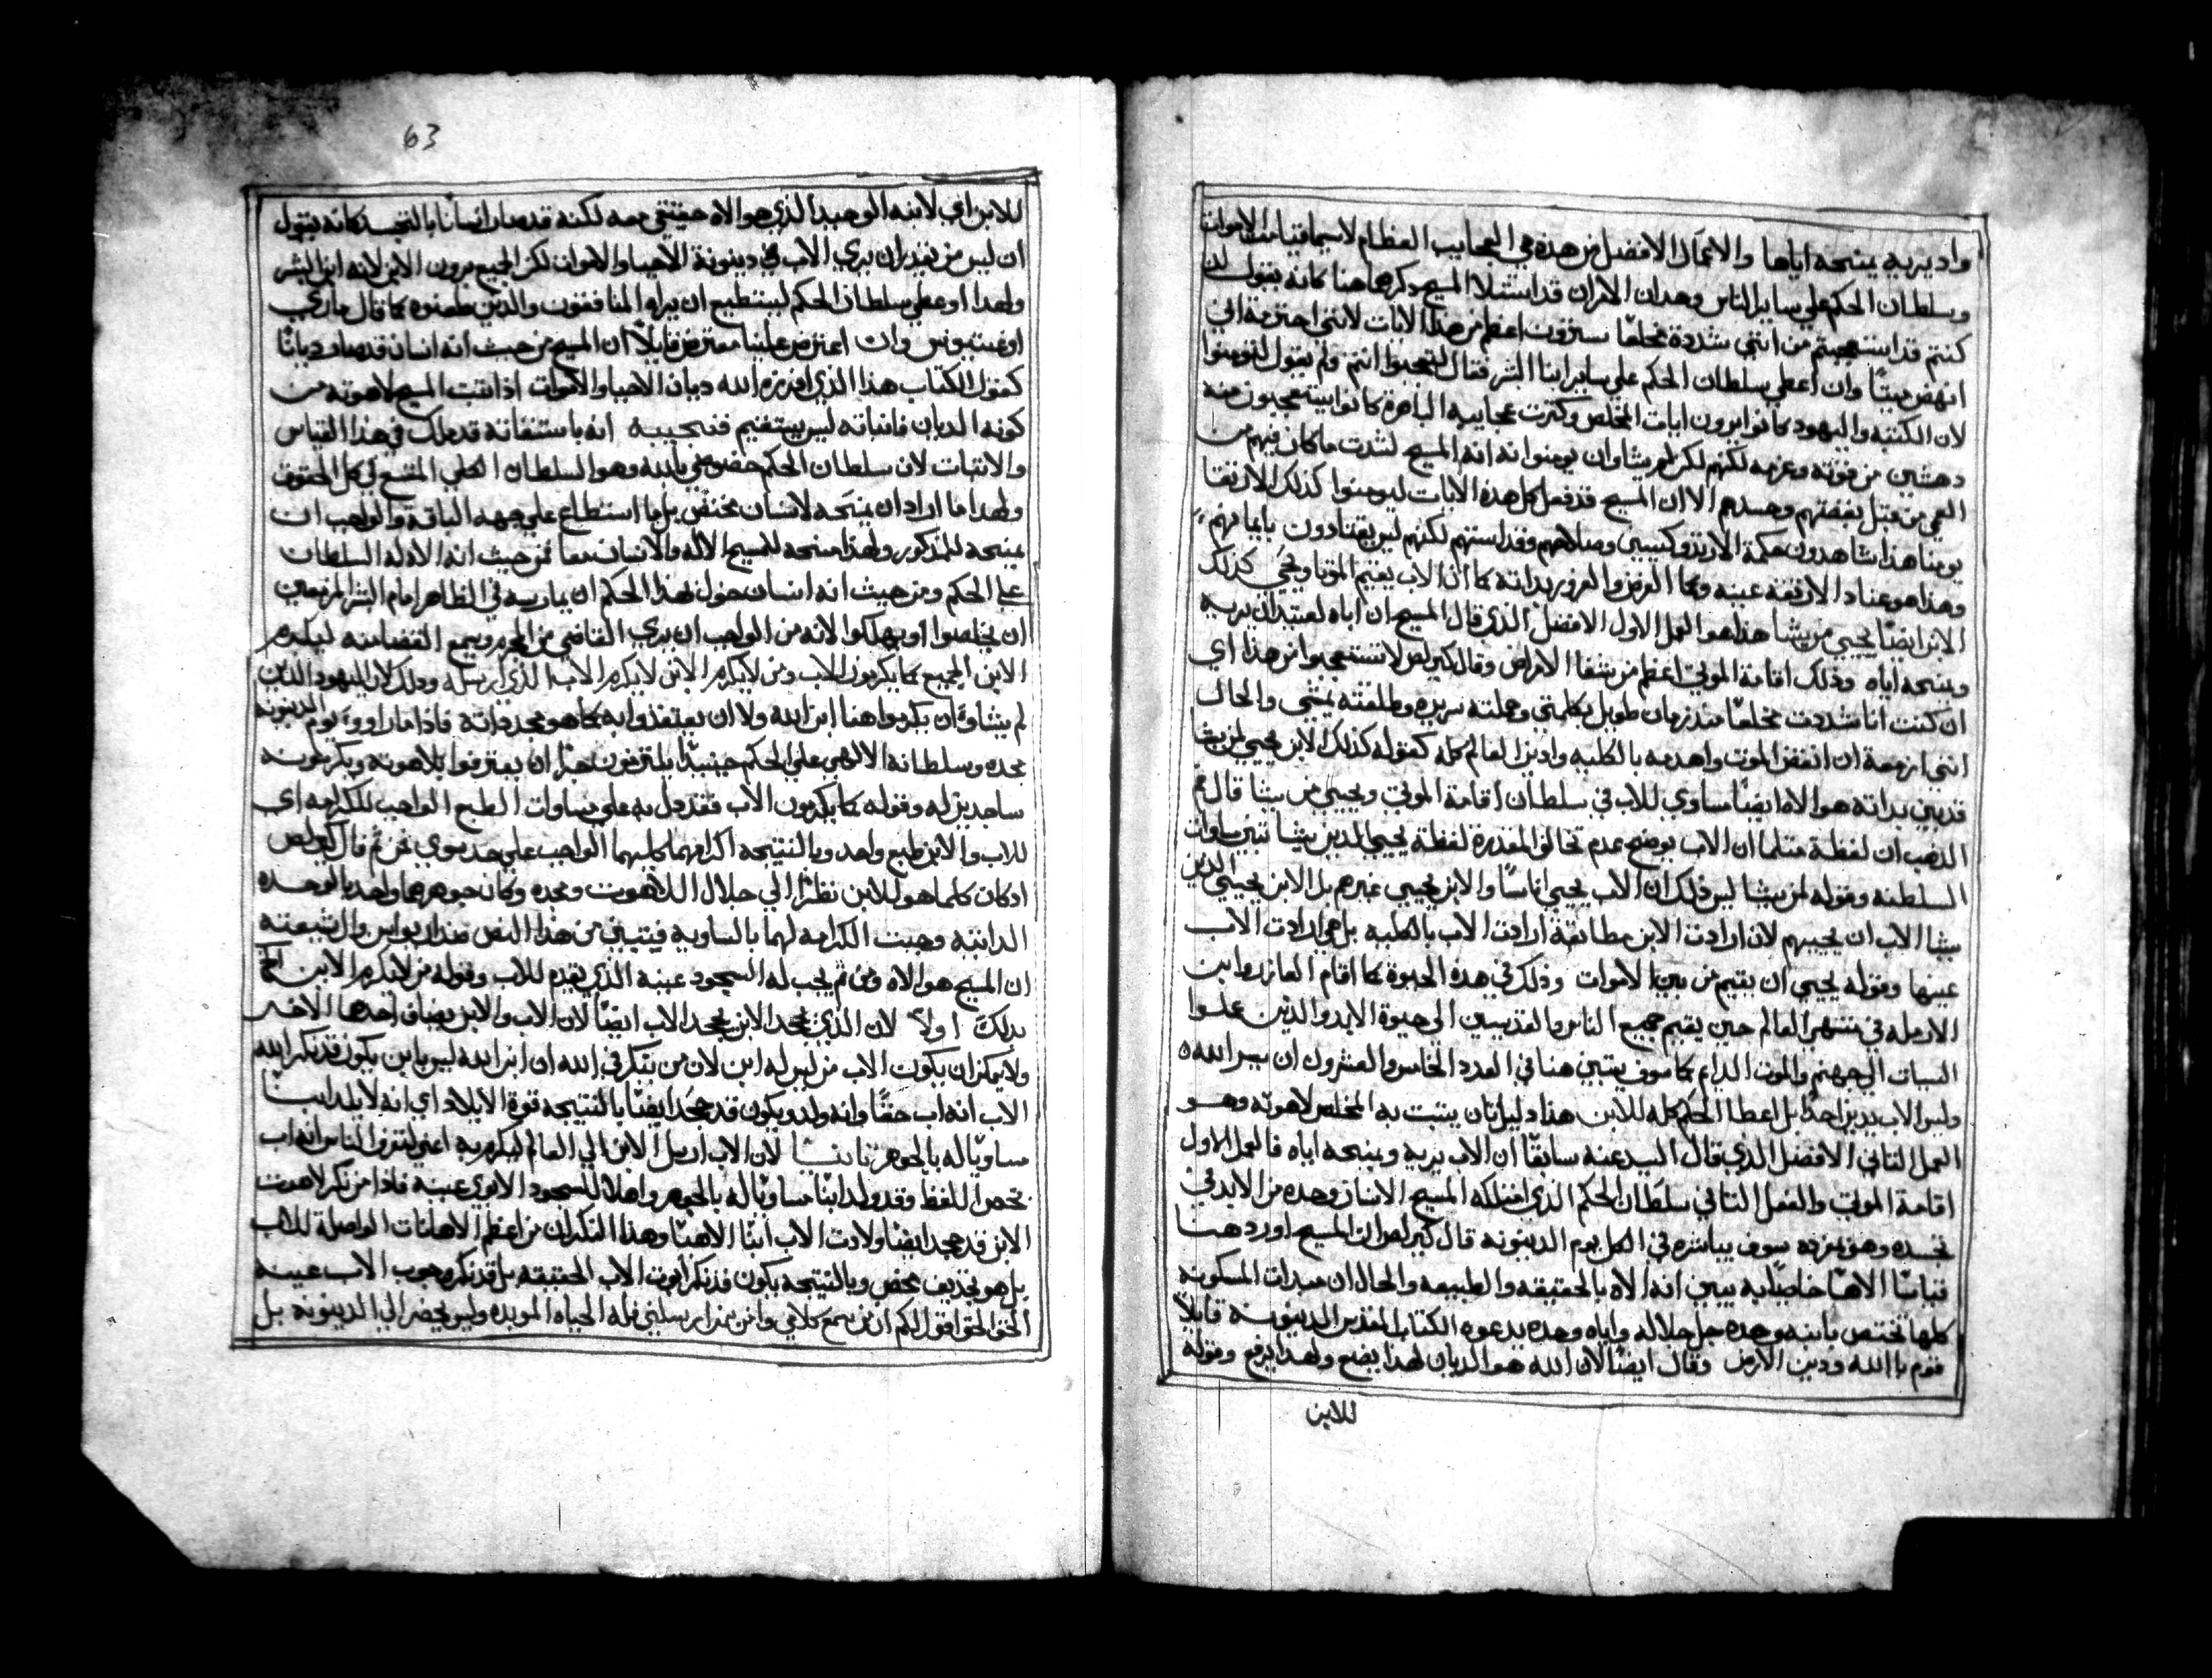 واد يريه يمنحه اياها والاعمال الافضل من هذه هي العجايب العظام لاسيما قيامت الاموات
وسلطان الحكم علي ساير الناس وهدان الامران قد استثلا المسيح دكرها هنا كانه يقول ان
كنتم قد استعجبتم من انني شددة مخلعًا سترون اعظم من هذا الايات لانني احترمة اني
انهض ميتًا وان اعطي سلطان الحكم علي ساير ابنا البشر فقال لتتعجبوا انتم ولم يقول لتومنوا
لان الكتبه واليهود كانوا يرون ايات المخلص وكترت عجايبه الباهرة كانوا يتعجبون منه
دهشين من قوته وعزمه لكنهم لم يشاوان يومنوا به انه المسيح لشدت ما كان فيهم من
العمي من قبل بغضتهم وحسدهم الا ان المسيح قد فعل كل هذه الايات ليومنوا كذلك الارتقا
يومنا هذا شاهدون حكمة الارتدوكسيين وصلاحهم وقداستهم لكنهم ليس يقتادون بايمانهم
وهذا هو عناد الارتقة عينه وكما الغرض والغرور بداته كما ان الاب يقيم الموتا ويحيي كذلك
الابن ايضًا يحيي من يشا هذا هو العمل الاول الافضل الذي قال المسيح ان اباه لعتيد ان يريه
ويمنحه اياه وذلك اقامة الموتي اعظم من شفا الامراض وقال كيرلص لا تستعجبوا من هذا اي
ان كنت انا شددت مخلعًا مند زمان طويل بكلمتي وحملته سريره وطلقته يمشي والحال
انني ازمعة ان انقض الموت واهدمه بالكليه وادين العالم كله كقوله كذلك الابن يحيي لمن يشا
قد بين بداته هو الاه ايضًا مساوي للاب في سلطان اقامة الموتي ويحيي من يشا قال فم
الذهب ان لفظة متلما ان الاب يوضح عدم تخالف المقدرة لفظة يحيي للدين يشا تبين ساوات
السلطنه وقوله لمن يشا ليس ذلك ان الاب يحيي اناسًا والابن يحيي غيرهم بل الابن يحيي الدين
يشا الاب ان يحييهم لان ارادت الابن مطابقة ارادت الاب بالكليه بل هي ارادت الاب
عينها وقوله يحيي ان يقيم من بين الاموات وذلك في هذه الحيوة كما اقام العازر وابن
الارمله في منتهي العالم حين يقيم جميع الناس والقديسين الي حيوة الابد والذين عملوا
السيات الي جهنم والموت الدايم كما سوف يتبين هنا في العدد الخامس والعشرون ان يسر الله
وليس الاب يدين احدًا بل اعطا الحكم كله للابن هذا دليل تان يتبت به المخلص لاهوته وهو
العمل التاني الافضل الذي قال السيد عنه سابقًا ان الاب يريه ويمنحه اياه فالعمل الاول
اقامة الموتي والفعل التاني سلطان الحكم الذي امتلكه المسيح الانسان وحده من الابد في
تجسده وهو بمفرده سوف يباشره في الكل يوم الدينونه قال كيرلص ان المسيح اورد هنا
قياسًا الاهيًا خاصًا به يبين انه الاه بالحقيقه والطبيعه والحال ان ميدات المسكونه
كلها تختص بابنه وحده جل جلاله واياه وحده يدعوه الكتاب المقدس الدينونة قايلاً
قوم يا الله ودين الارض وقال ايضًا لان الله هو الديان لهذا يضع ولهذا يرفع وقوله
للابن
63
للابن اي لابنه الوحيد الذي هو الاه حقيقي معه لكنه قد صار انسانًا بالتجسد كانه يقول
ان ليس من يقدر ان يري الاب في دينونة الاحيا والاموات لكن الجميع يرون الابن لانه ابن البشر
ولهدا اوعطي سلطان الحكم ليستطيع ان يراه المنافقون والدين طعنوه كما قال ماري
اوغستينوس وان اعترض علينا معترض قايلاً ان المسيح من حيث انه انسان قد صار ديانًا
كقول الكتاب هذا الذي افرزه الله ديان الاحيا والاموات اذا اتبت المسيح لاهوته من
كونه الديان فاتباته ليس يستقيم فنجيبه انه باستقاته قد ملك في هذا القياس
والاتبات لان سلطان الحكم خصوصي بالله وهو السلطان الكلي المتسع في كل الحقوق
ولهدا ما اراد ان يمنحه لانسان مختص بل ما استطاع علي جهه الباقة والواجب ان
يمنحه للمدكور ولهدا منحه للمسيح الاله والانسان معا فمن حيث انه الاه له السلطان
علي الحكم ومن حيث انه انسان خول لهدا الحكم ان يمارسه في الظاهر امام البشر المزمعين
ان يخلصوا او يهلكوا لانه من الواجب ان يري القاضي من المجرم ويسمع القضا منه ليكرم
الابن الجميع كما يكرمون الاب ومن لا يكرم الابن لا يكرم الاب الذي ارسله ودلك لان اليهود الدين
لم يشاوا ان يكرموا هنا ابن الله ولا ان يعتقدوا به كما هو بمجد داته فاذا ما راووه يوم الدينونة
بمجده وسلطانه الالاهي علي الحكم حينيذًا يلتزمون جبرًا ان يعترفوا بلاهوته ويكرمونه
ساجدين له وقوله كما يكرمون الاب فقد دل به علي مساوات الطبع الواجب للكرامه اي
للاب والابن طبع واحد وبالنتيجه اكرامهما كليهما الواجب علي حد سوي فمن تم قال كيرلص
ادكان كلما هو للابن نظرًا الي جلال اللاهوت ومجده وكان جوهرهما واحد بالوحده
الداتيه وجبت الكرامه لهما بالساويه فيتبين من هذا النص ضد اريوس والتبيعته
ان المسيح هو الاه ومن تم يجب له السجود عينه الذي يقدم للاب وقوله من لا يكرم الابن الخ
بدلك اولاً لان الذي يجحد الابن يجحد الاب ايضًا لان الاب والابن يضاف احدها الاخر
ولا يمكن ان يكون الاب من ليس له ابن لان من ينكر في الله ان ابن الله ليس بابن يكون قد نكر الله
الاب انه اب حقًا وانه ولد ويكون قد جحد ايضًا بالنتيجه قوة الايلاد اي انه لا يلد ابنًا
مساويًا له بالجوهر تانيًا لان الاب ارسل الابن الي العالم ليكرم به اعني لتعرف الناس انه اب
تحص اللفظ وقد ولد ابنًا مساويًا له بالجوهر واهلا للسجود الابوي عينه فاذا من نكر لاهوت
الابن قد جحد ايضًا ولادت الاب ابنًا الاهيًا وهذا النكران من اعظم الاهانات الواصلة للاب
بل هو تجديف محض وبالنتيجه يكون قد نكر ابوت الاب الحقيقه بل قد نكر وجوب الاب عينه
الحق الحق اقول لكم ان من يسمع كلامي وامن بمن ارسلني فله الحياه الموبده وليس يحضر الي الدينونة بل